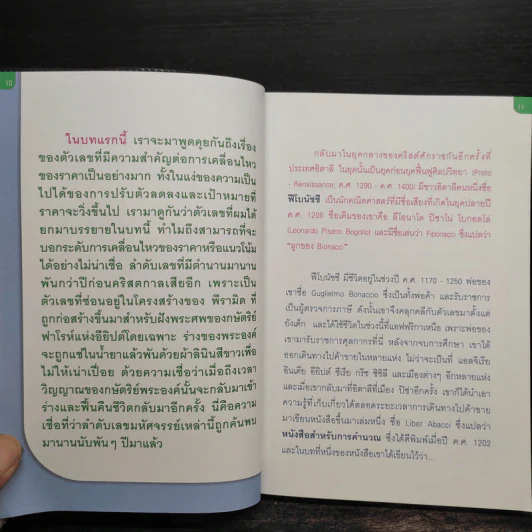 10
ในบทแรกนี้ เราจะมาพูดคุยกันถึงเรื่อง
ของตัวเลขที่มีความสำคัญต่อการเคลื่อนไหว
ของราคาเป็นอย่างมาก ทั้งในแง่ของความเป็น
ไปได้ของการปรับตัวลดลงและเป้าหมายที่
ราคาจะวิ่งขึ้นไป เรามาดูกันว่าตัวเลขที่ผมได้
ยกมาบรรยายในบทนี้ ทำไมถึงสามารถที่จะ
บอกระดับการเคลื่อนไหวของราคาหรือแนวโน้ม
ได้อย่างไม่น่าเชื่อ ลำดับเลขที่มีตำนานมานาน
พันกว่าปีก่อนคริสตกาลเสียอีก เพราะเป็น
ตัวเลขที่ซ่อนอยู่ในโครงสร้างของ พีรามิด ที่
ถูกก่อสร้างขึ้นมาสำหรับฝังพระศพของกษัตริย์
ฟาโรห์แห่งอียิปต์โดยเฉพาะ ร่างของพระองค์
จะถูกแช่ในน้ำยาแล้วพันด้วยผ้าลินินสีขาวเพื่อ
ไม่ให้เน่าเปื่อย ด้วยความเชื่อว่าเมื่อถึงเวลา
วิญญาณของกษัตริย์พระองค์นั้นจะกลับมาเข้า
ร่างและฟื้นคืนชีวิตกลับมาอีกครั้ง นี่คือความ
เชื่อที่ว่าลำดับเลขมหัศจรรย์เหล่านี้ถูกค้นพบ
มานานนับพันๆ ปีมาแล้ว
11
กลับมาในยุคกลางของคริสต์ศักราชกันอีกครั้งที่
ประเทศอิตาลี ในยุคนั้นเป็นยุคก่อนยุคฟื้นฟูศิลปวิทยา (Proto
- Renaissance, ค.ศ. 1290 - ค.ศ. 1400) มีชาวอิตาลีคนหนึ่งชื่อ
ฟีโบนัชชี เป็นนักคณิตศาสตร์ที่มีชื่อเสียงที่เกิดในยุคปลายปี
ค.ศ. 1200 ชื่อเดิมของเขาคือ ลีโอนาโด ปิซาโน โบกอลโล่
(Leonardo Pisano Bogollo) และมีชื่อเล่นว่า Fibonacci ซึ่งแปลว่า
"ลูกของ Bonacci"
ฟีโบนัชชี มีชีวิตอยู่ในช่วงปี ค.ศ. 1170 - 1250 พ่อของ
เขาชื่อ Guglielmo Bonaccio ซึ่งเป็นทั้งพ่อค้า และรับราชการ
เป็นผู้ตรวจการภาษี ดังนั้นเขาจึงคลุกคลีกับตัวเลขมาตั้งแต่
ยังเด็ก และได้ใช้ชีวิตในช่วงนี้ที่แอฟฟริกาเหนือ เพราะพ่อของ
เขามารับราชการศุลกาการที่นี่ หลังจากจบการศึกษา เขาได้
ออกเดินทางไปค้าขายในหลายแห่ง ไม่ว่าจะเป็นที่ แอลจีเรีย
อินเดีย อียิปต์ ซีเรีย กรีซ ซิซิลี และเมืองต่างๆ อีกหลายแห่ง
และเมื่อเขากลับมาที่อิตาลีที่เมือง ปิซ่าอีกครั้ง เขาก็ได้นำเอา
ความรู้ที่เก็บเกี่ยวได้ตลอดระยะเวลาการเดินทางไปค้าขาย
มาเขียนหนังสือขึ้นมาเล่มหนึ่ง ชื่อ Liber Abacci ซึ่งแปลว่า
หนังสือสำหรับการคำนวณ ซึ่งได้ตีพิมพ์เมื่อปี ค.ศ. 1202
และในบทที่หนึ่งของหนังสือเขาได้เขียนไว้ว่า...